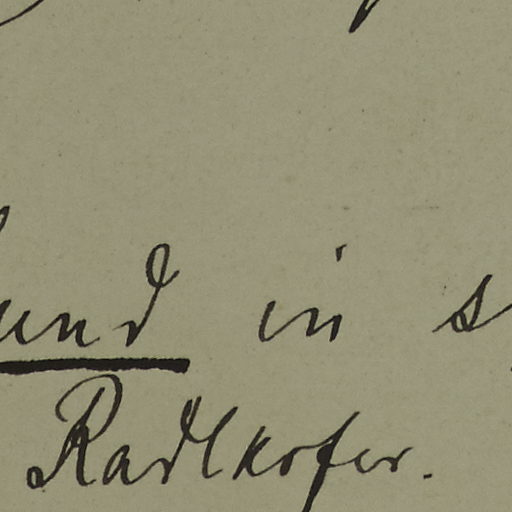 und in s
Radlkofer.